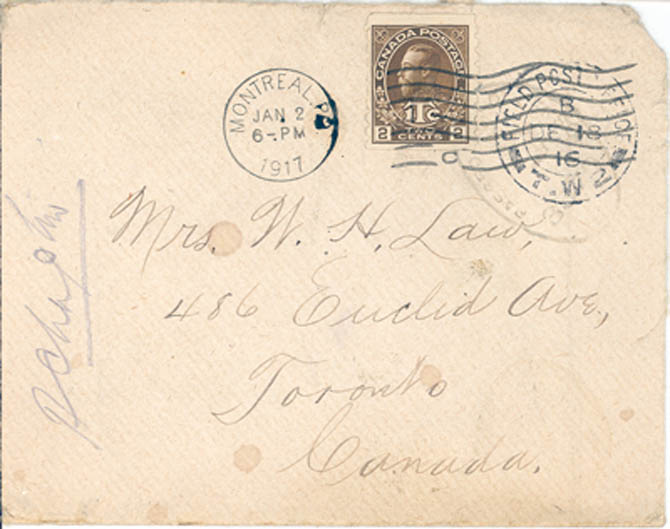 CANADA POSTAGE
1Tc
2 CENTS 2
MONTREAL, P.Q.
JAN 2
6-PM
1917
FIELD POST OFFICE
B
DE 18
16
Mrs. W. H. Law,
486 Euclid Ave,
Toronto
Canada.